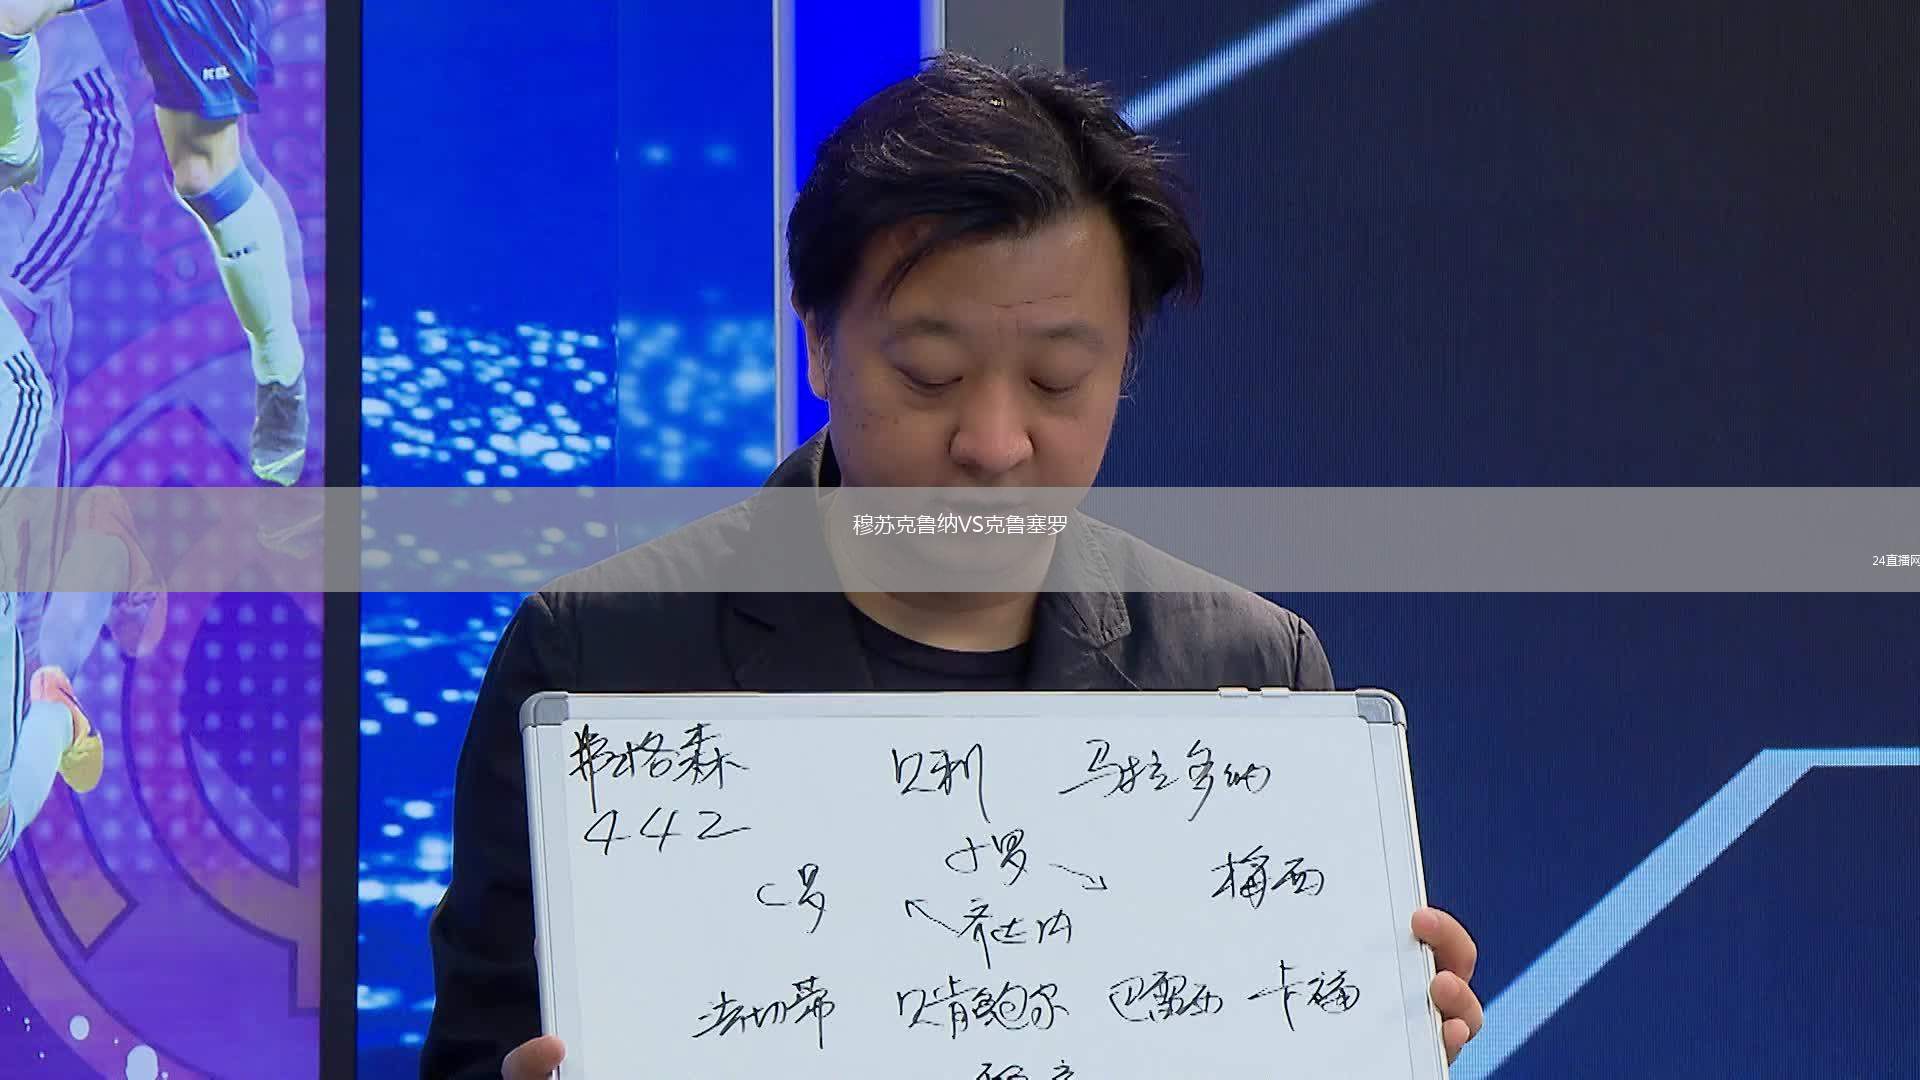 穆苏克鲁纳VS克鲁塞罗
24直播网
弗格森 贝利 马拉多纳
442
小罗
C罗 梅西
齐达内
法切蒂 贝肯鲍尔 巴雷西 卡福